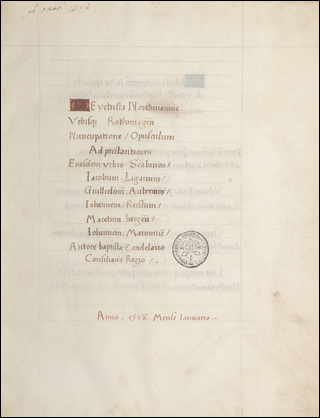 De Vetusta Northmaniae
Urbisq; Rothomagen
Nuncupatione / Opusculum
Ad prestantiores
Eiusdem Urbis Scabinos /
Iacobum. Laganum /
Guillielmũ. Auberinũ /
Iohannem. Russum /
Macetum. bargeũ /
Iohannem. Maromiũ /
Autore baptista Candelario
Consiliario Regio / .
Anno. 1528. Mense Ianuario .